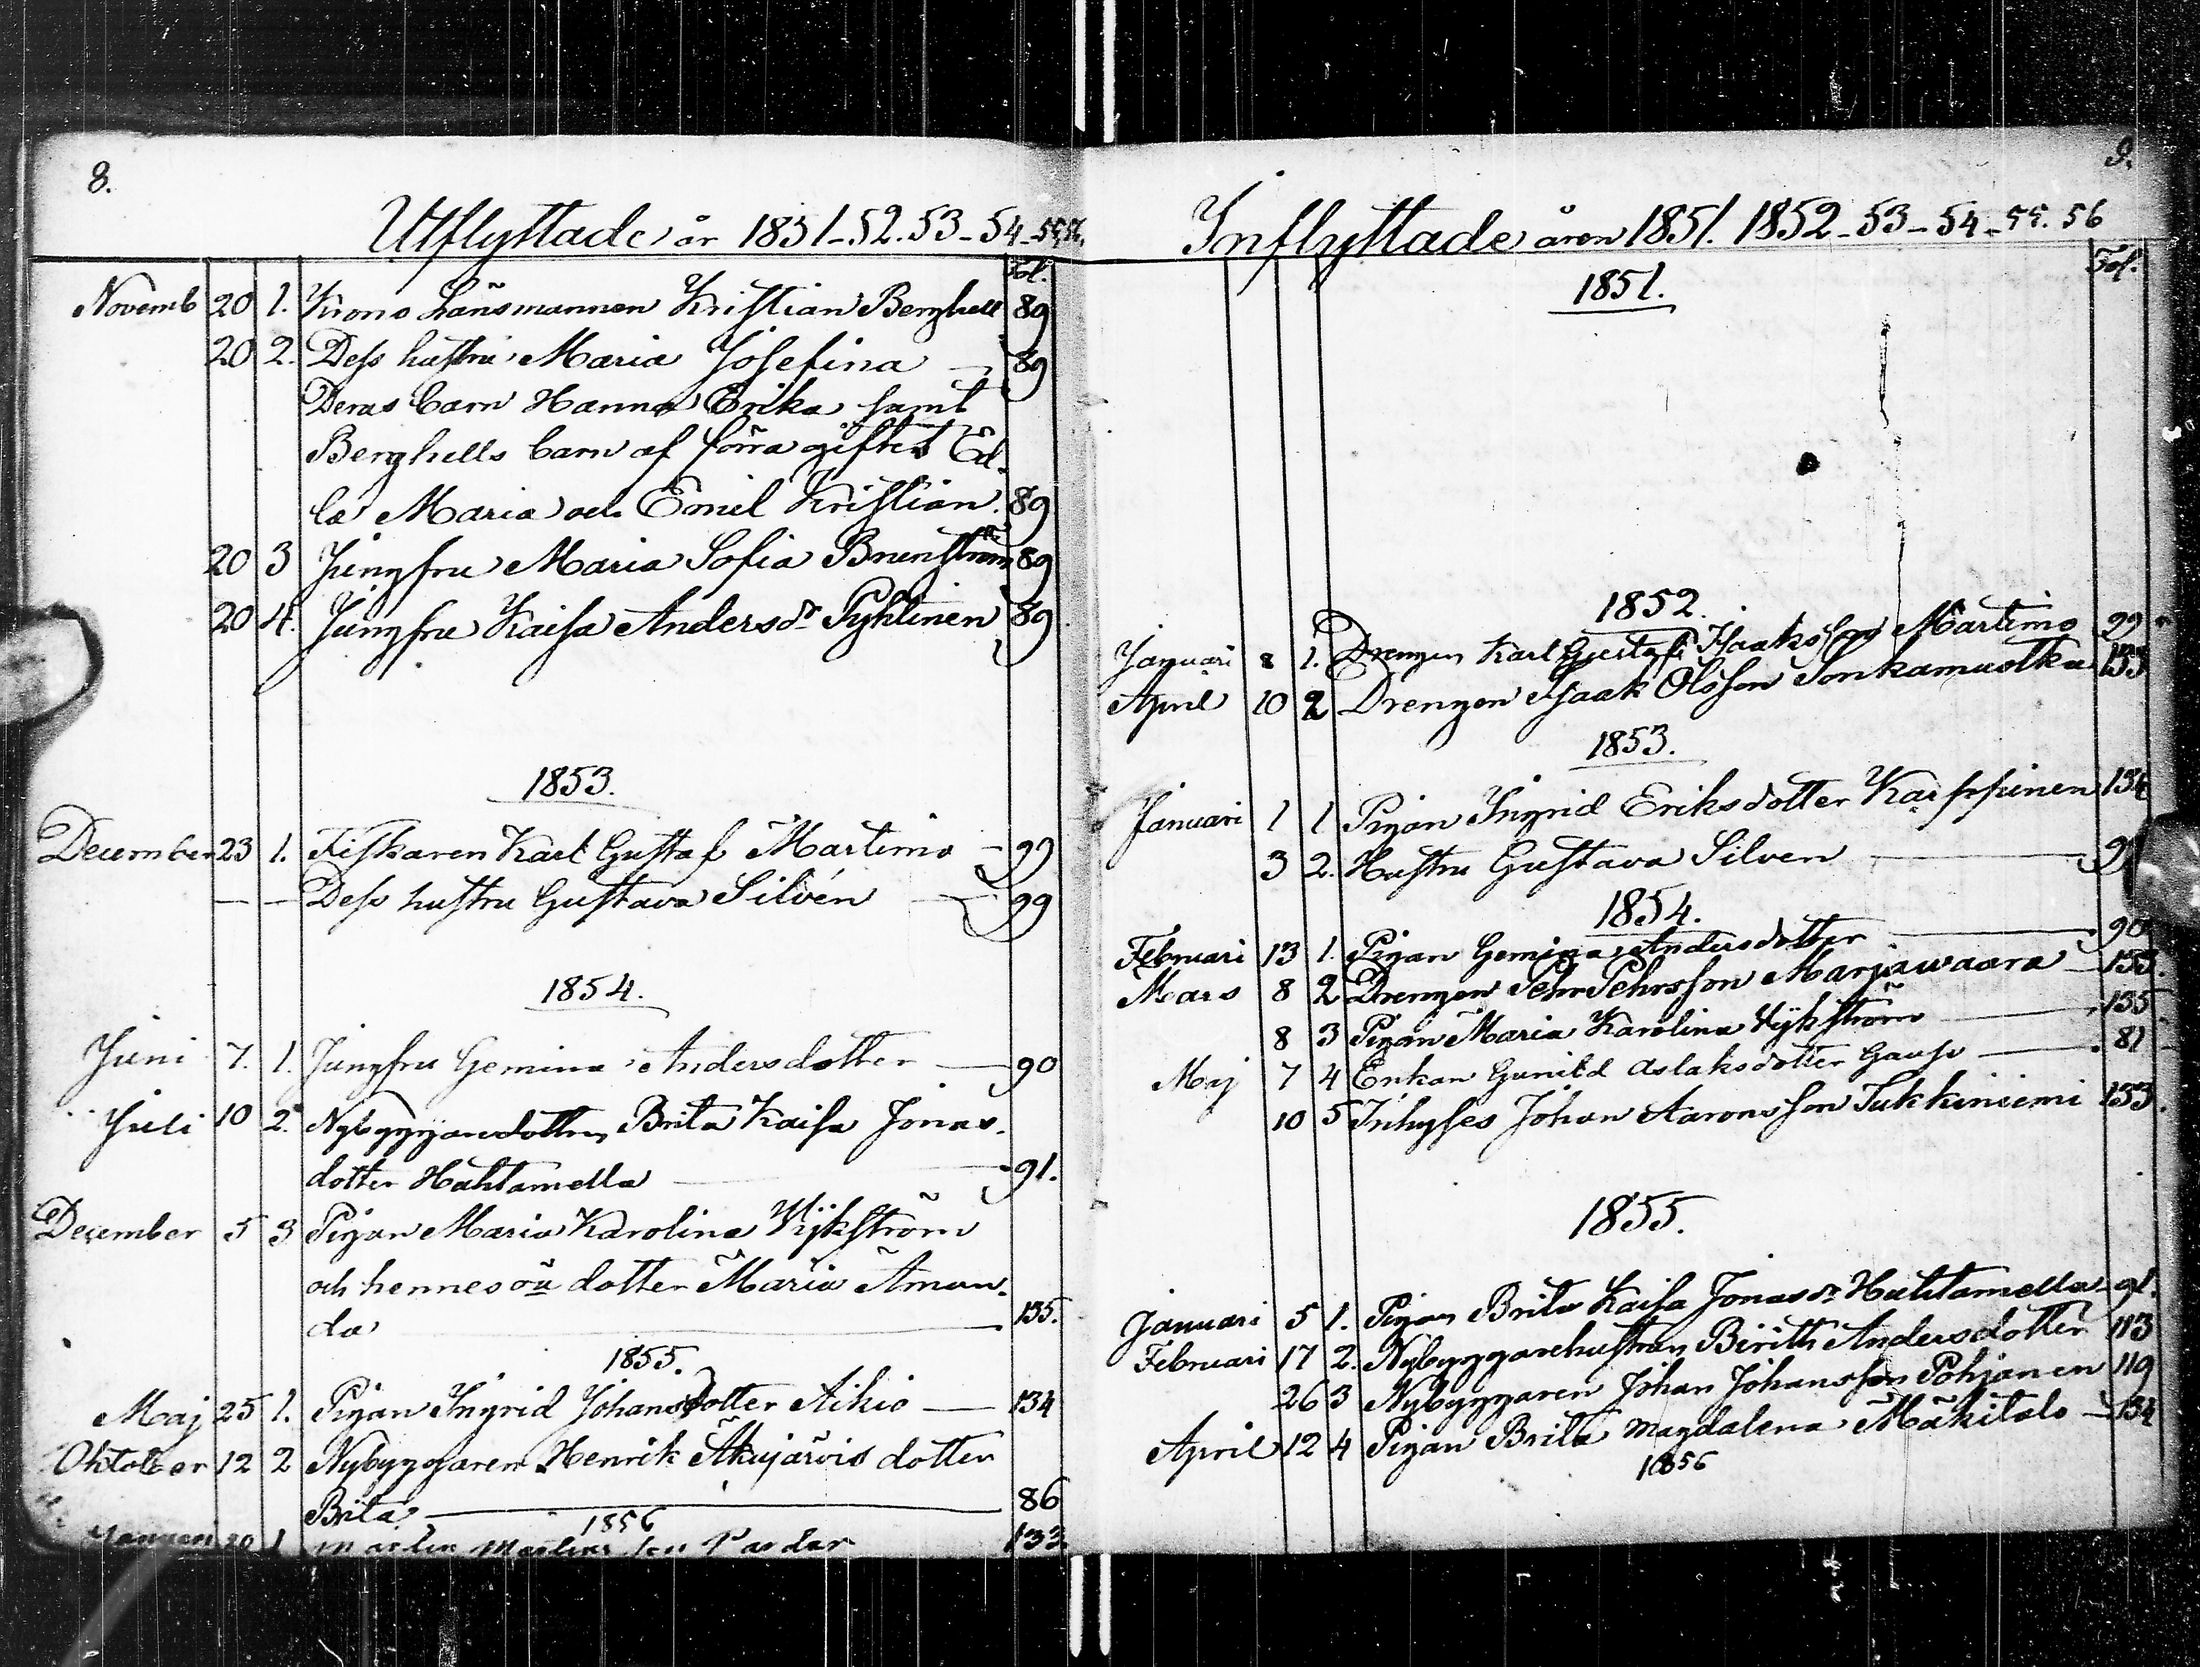 8.
Utflyttade år 1851-52.53-54-55.56.
Fol.
Novemb 20 1. Krono Länsmannen Kristian Berghell 89
20 2. Dess hustru Maria Josefina 89
Deras barn Hanna Erika samt
Berghells barn af förra giftet Ed-
la Maria och Emil Kristian. 89
20 3 Jungfru Maria Sofia Brunström 89
20 4. Jungfru Kaisa Andersdr Pyhtinen 89
1853.
December 23 1. Fiskaren Karl Gustaf Martimo - 99
- - Dess hustru Gustava Silvén - 99
1854.
Juni 7. 1. Jungfru Gemina Andersdotter - 90
Juli 10 2. Nybyggaredottren Brita Kaisa Jonas-
dotter Hahtamella - 91.
December 5 3 Pigan Maria Karolina Wykström
och hennes oä dotter Maria Aman-
da - 135.
1855.
Maj 25 1. Pigan Ingrid Johansdotter Aikio - 134
Oktober 12 2 Nybyggaren Henrik Akujärvis dotter
Brita - 86
1856
Januari 20 1 133
9.
Inflyttade åren 1851. 1852-53-54-55.56
Fol.
1851.
1852.
Januari 8 1. Drengen Karl Gustaf Isaksson Martimo 99
April 10 2 Drengen Isaak Olsson Sonkamuotka 153
1853.
Januari 1 1 Pigan Ingrid Eriksdotter Karppinen 134
3 2. Hustru Gustava Silven - 99
1854.
Februari 13 1. Pigan Gemina Andersdotter - 90
Mars 8 2 Drengen Pehr Pehrsson Marjawaara - 153.
8 3 Pigan Maria Karolina Wykström - 135
Maj 7 4 Enkan Gunild Aslaksdotter - 81
10 5 Inhyses Johan Aaronsson Tukkiniemi 153.
1855.
Januari 5 1. Pigan Brita Kaisa Jonasdr Hahtamella 91.
Februari 17 2. Nybyggarehustrun Birith Andersdotter 113
26 3 Nybyggaren Johan Johansson Pohjanen 119
April 12 4 Pigan Brita Magdalena Mäkitalo - 134
1856